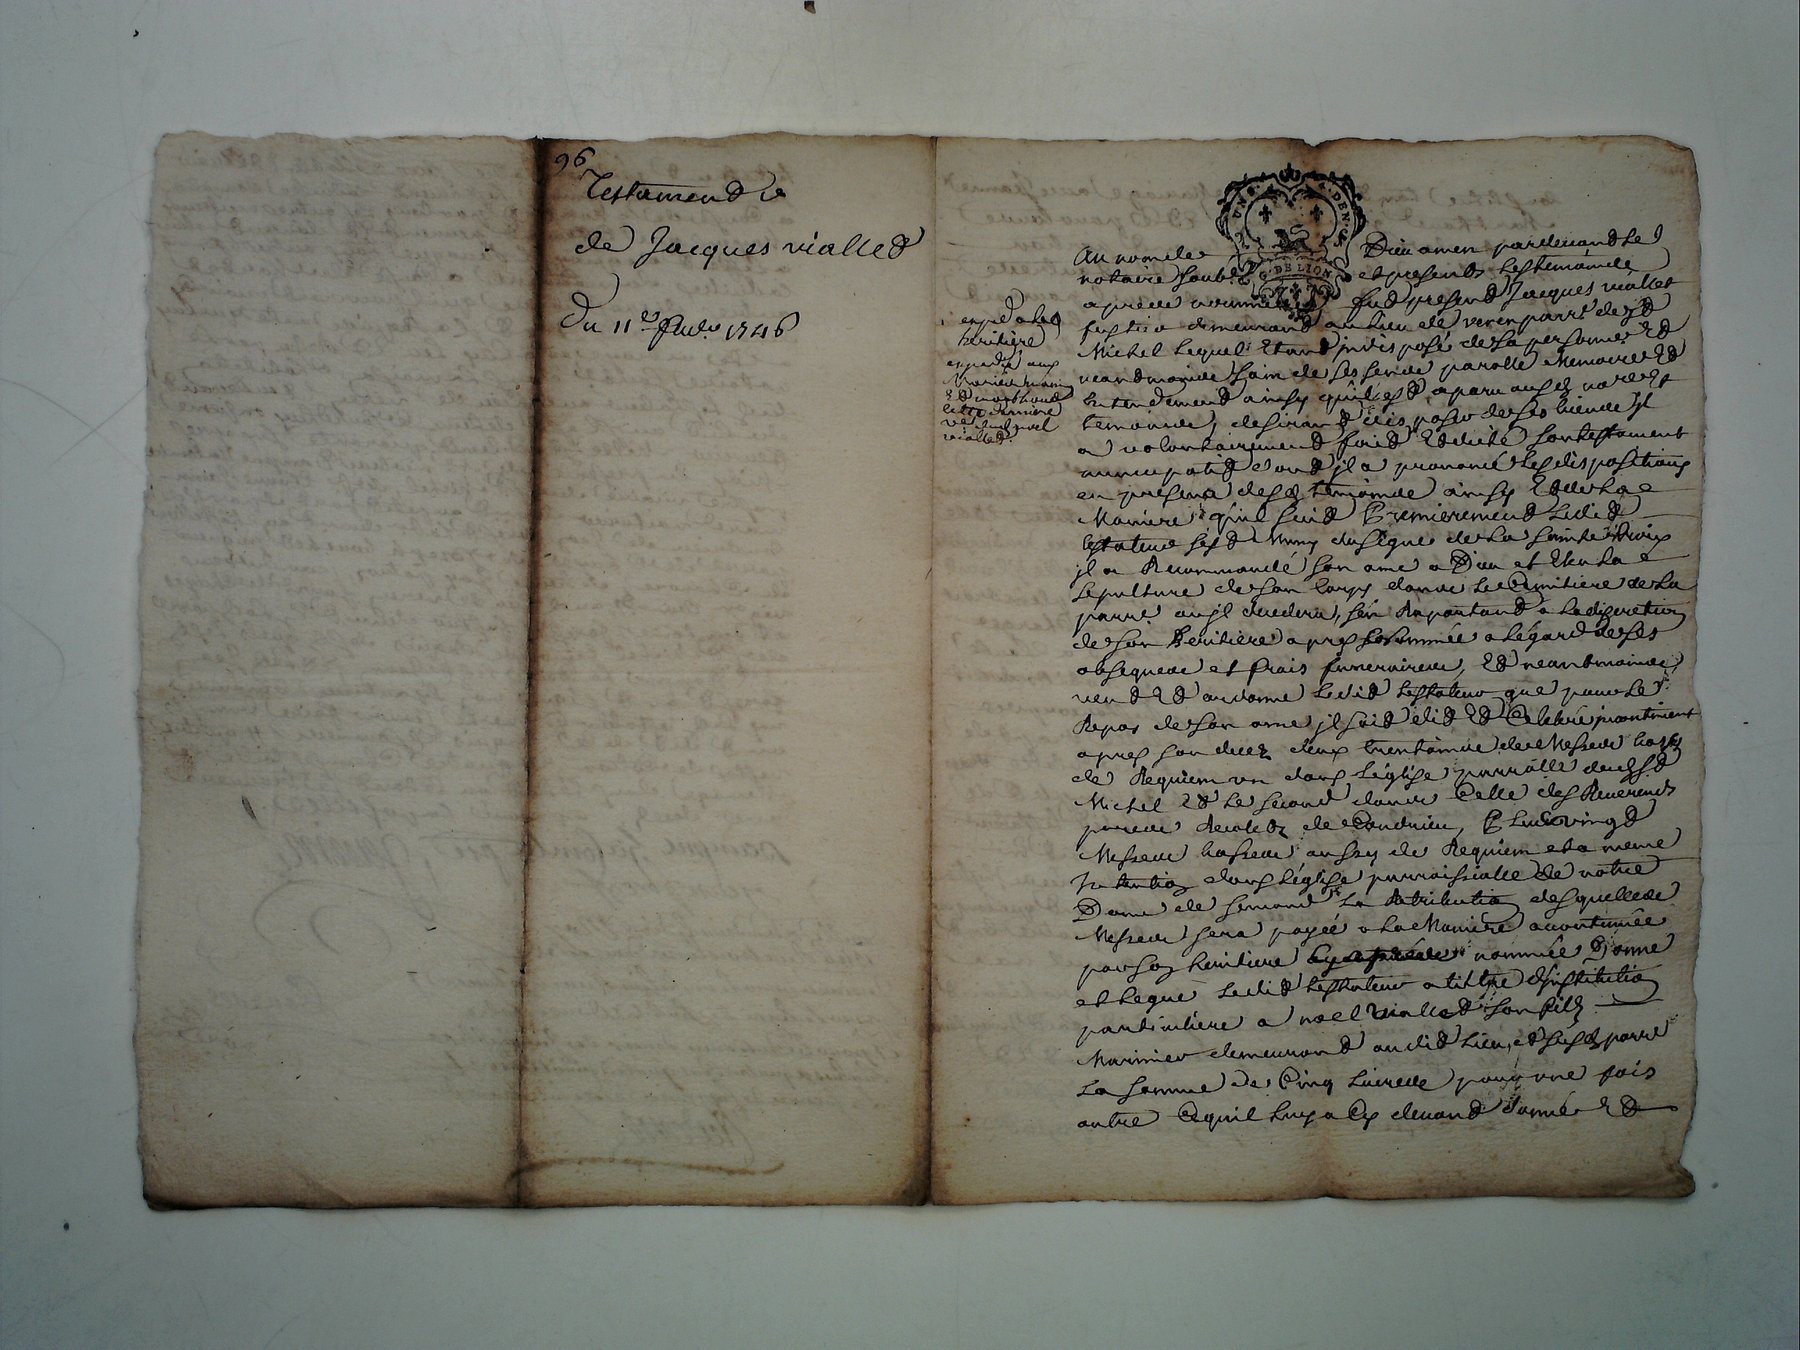 96
Testament
de Jacques viallet
Du 11e Juil. 1746
UN S. 4. DEN.
G. DE LION
expedie a la
heritiere
expedié aux
Mariés
et
cette derniere
ve
viallet.
Au nom de Dieu amen pardevant le
notaire soubz. et presents les temoins
apres nommés fut present Jacques viallet
demeurant au lieu de verin parr. de St
Michel lequel etant indisposé de sa personne et
neantmoins sain de ses sens parolle Memoire et
Entendement ainsy qu'il est aparu auxd. no.re et
temoins, desirant disposer de ses biens Jl
a volontairement fait et dicté son testament
nuncupatif dont jl a prononcé les dispositions
en presence desd. temoins ainsy et de la
Maniere qu'il suit Premierement ledit
testateur s'est Muny du signe de la sainte Croix
jl a Recommandé son ame a Dieu et Eleu la
sepulture de son corps dans le Cimitiere de la
parr. ou jl decedera, s'en Raportant a la discretion
de son heritiere apres nommée a l'égard de ses
obseques et frais funeraires, et neantmoins
veut et ordonne ledit testateur que pour le
Repos de son ame jl soit dit et Celebré jncontinent
apres son decez deux trentaines de Messes basses
de Requiem un dans l'église parr.alle dud. St
Michel et le second dans Celle des Reverends
peres Recoletz de Condrieu, Plus vingt
Messes basses aussy de Requiem et a meme
Jntention dans l'église parroissialle de notre
Dame de semons la Retribution desquelles
Messes sera payée a la Maniere acoutumée
par son heritiere nommée Donne
et legue ledit testateur a tiltre d'jnstitution
particuliere a noel viallet son filz
Marinier demeurant audit lieu, et susd. parr.
la somme de Cinq livres pour une fois
outre Cequil luy a Cy devant donné et